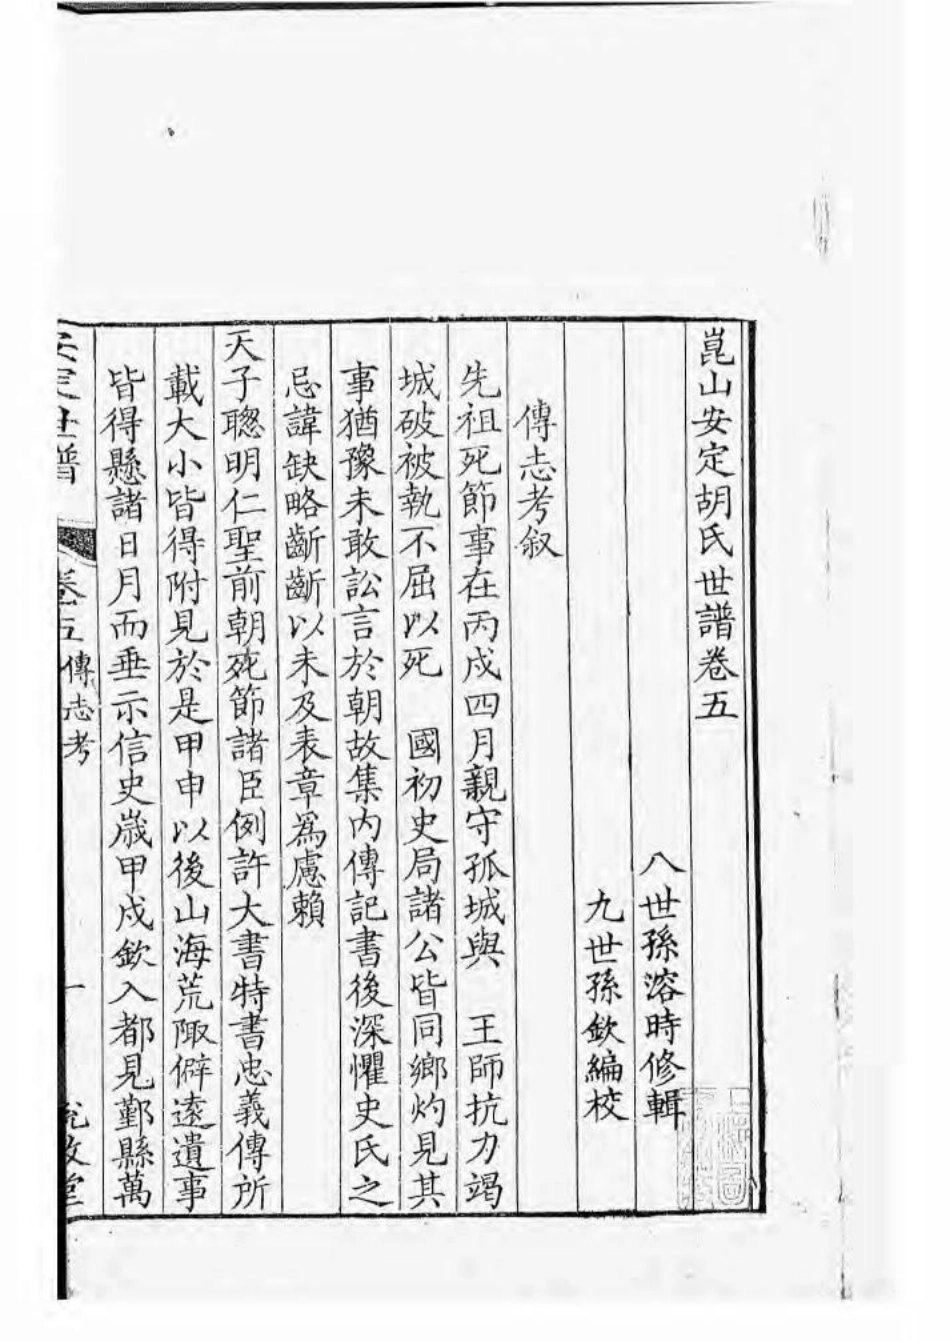 崑山安定胡氏世譜卷五
八世孫溶時修輯
九世孫欽編校
傳志考叙
先祖死節事在丙戍四月親守孤城與　王師抗力竭
城破被執不屈以死　國初史局諸公皆同鄉灼見其
事猶豫未敢訟言於朝故集內傳記書後深懼史氏之
忌諱缺略齗齗以未及表章爲慮賴
天子聰明仁聖前朝死節諸臣例許大書特書忠義傳所
載大小皆得附見於是甲申以後山海荒陬僻遠遺事
皆得懸諸日月而垂示信史嵗甲戍欽入都見鄞縣萬
安定世譜　卷五　傳志考　一